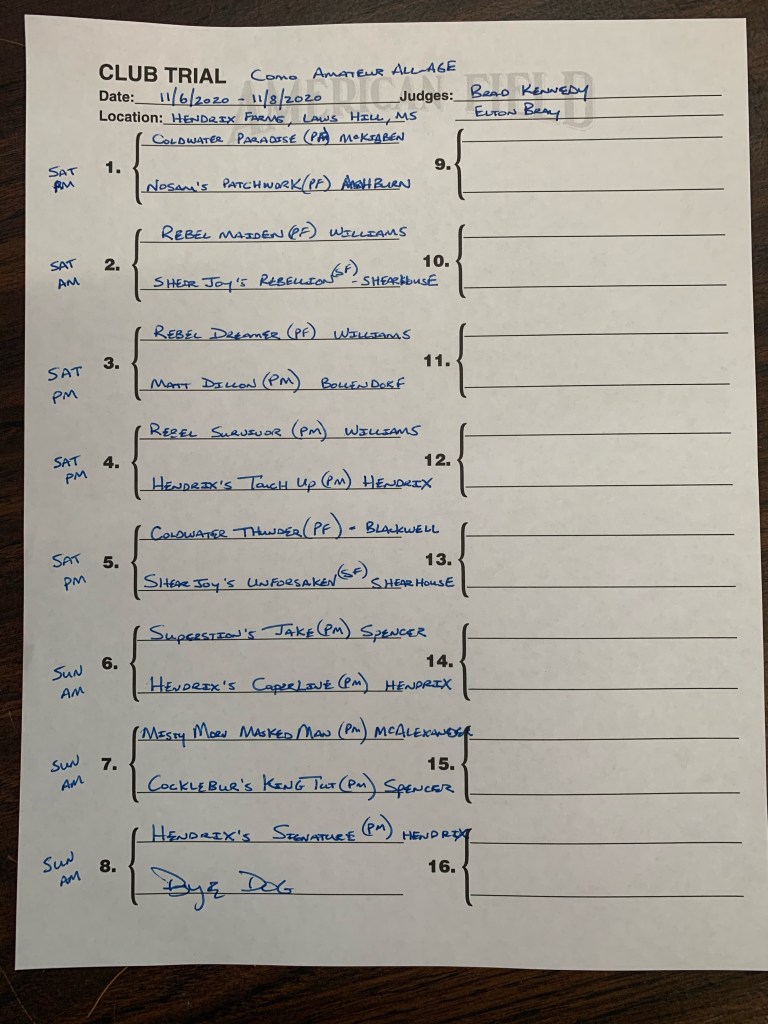 AMERICAN FIELD
CLUB TRIAL COMO AMATEUR ALL-AGE
Date: 11/6/2020 - 11/8/2020 Judges: BRAD KENNEDY
Location: HENDRIX FARMS, LAWS HILL, MS ELTON BRAY
SAT AM 1. COLDWATER PARADISE (PM) McKIBBEN
NOSAM'S PATCHWORK (PF) ASHBURN
SAT AM 2. REBEL MAIDEN (PF) WILLIAMS
SHEAR JOY'S REBELLION (SF) - SHEARHOUSE
SAT PM 3. REBEL DREAMER (PF) WILLIAMS
MATT DILLON (PM) BOLLENDORF
SAT PM 4. REBEL SURVIVOR (PM) WILLIAMS
HENDRIX'S TOUCH UP (PM) HENDRIX
SAT PM 5. COLDWATER THUNDER (PF) - BLACKWELL
SHEAR JOY'S UNFORSAKEN (SF) SHEARHOUSE
SUN AM 6. SUPERSTION'S JAKE (PM) SPENCER
HENDRIX'S CAPERLINE (PM) HENDRIX
SUN AM 7. MISTY MORN MASKED MAN (PM) MCALEXANDER
COCKLEBUR'S KING TUT (PM) SPENCER
SUN AM 8. HENDRIX'S SIGNATURE (PM) HENDRIX
BYE DOG
9.
10.
11.
12.
13.
14.
15.
16.